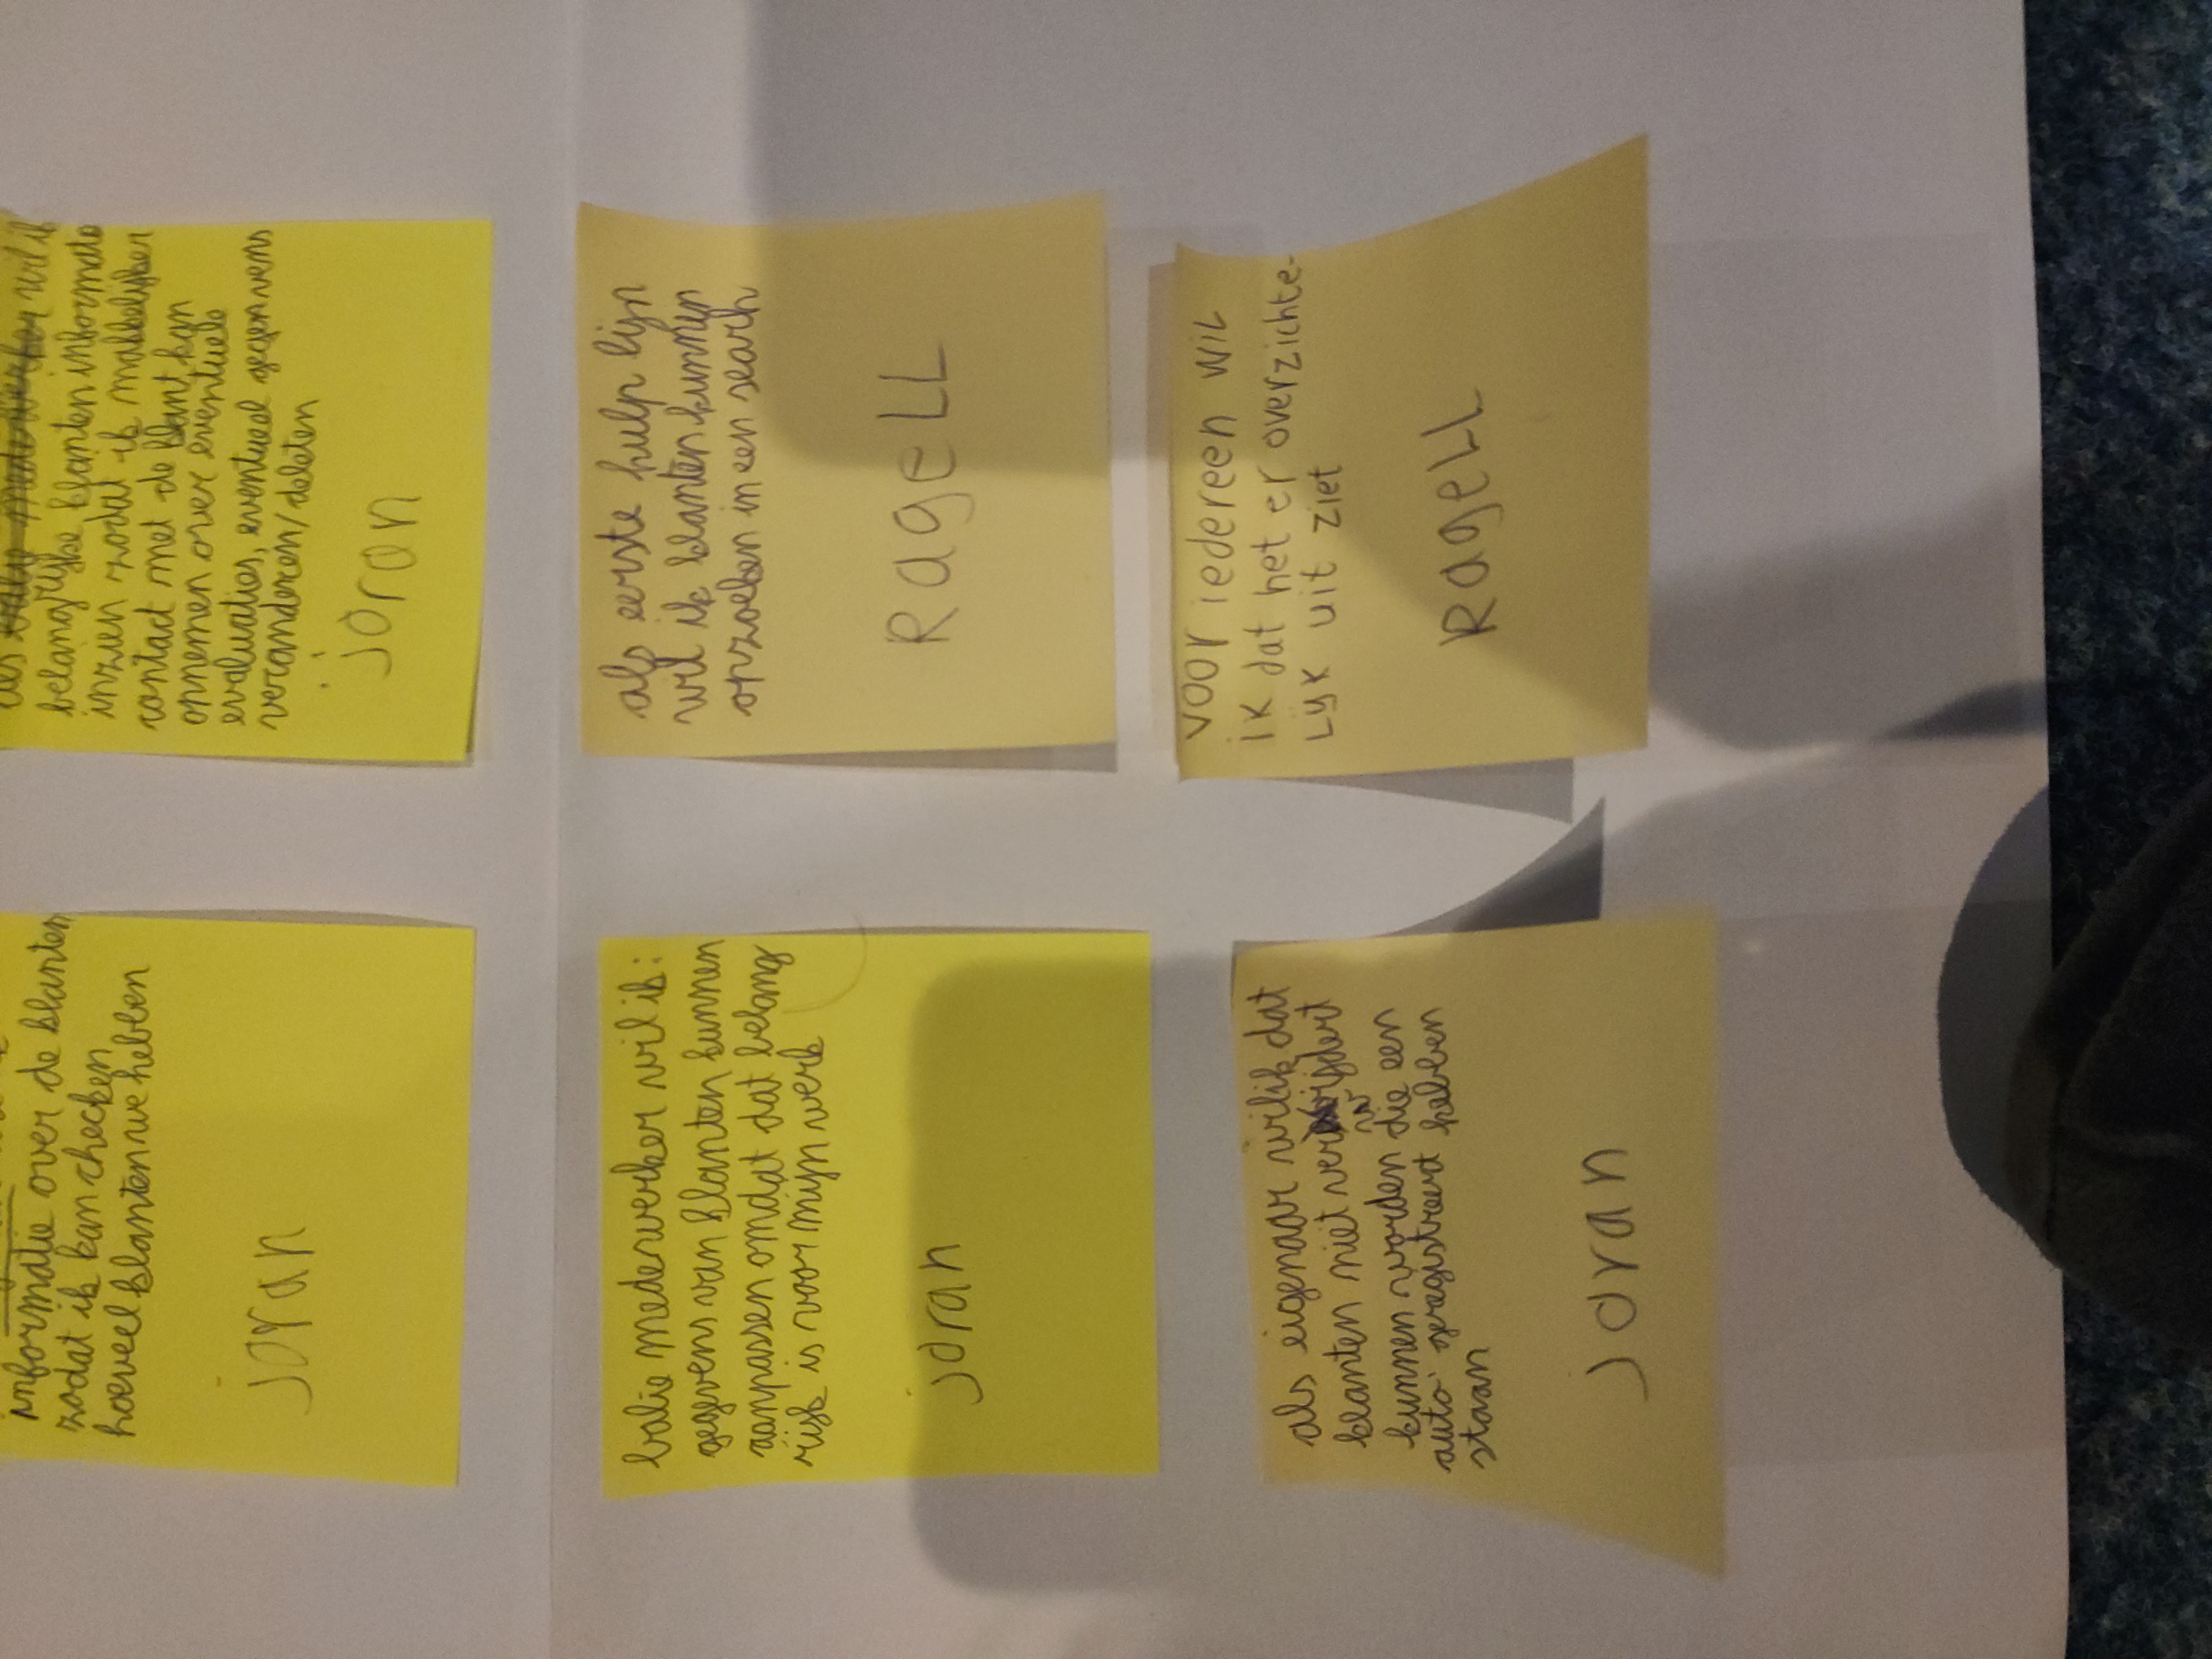 informatie over de klanten
zodat ik kan checken
hoeveel klanten we hebben
joran
als balie medewerker wil ik
belangrijke klanten informatie
inzien zodat ik makkelijker
contact met de klant kan
opnemen over eventuele
evaluaties, eventueel gegenvens
veranderen/deleten
joran
balie medewerker wil ik:
gegevens van klanten kunnen
aanpassen omdat dat belang
rijk is voor mijn werk
joran
als eerste hulp lijn
wil ik klanten kunnen
opzoeken in een searh
Ragell
als eigenaar wil ik dat
klanten niet verwijdert
kunnen worden die een
auto geregistreerd hebben
staan
joran
voor iedereen wil
ik dat het er overzichte-
lijk uit ziet
Ragell